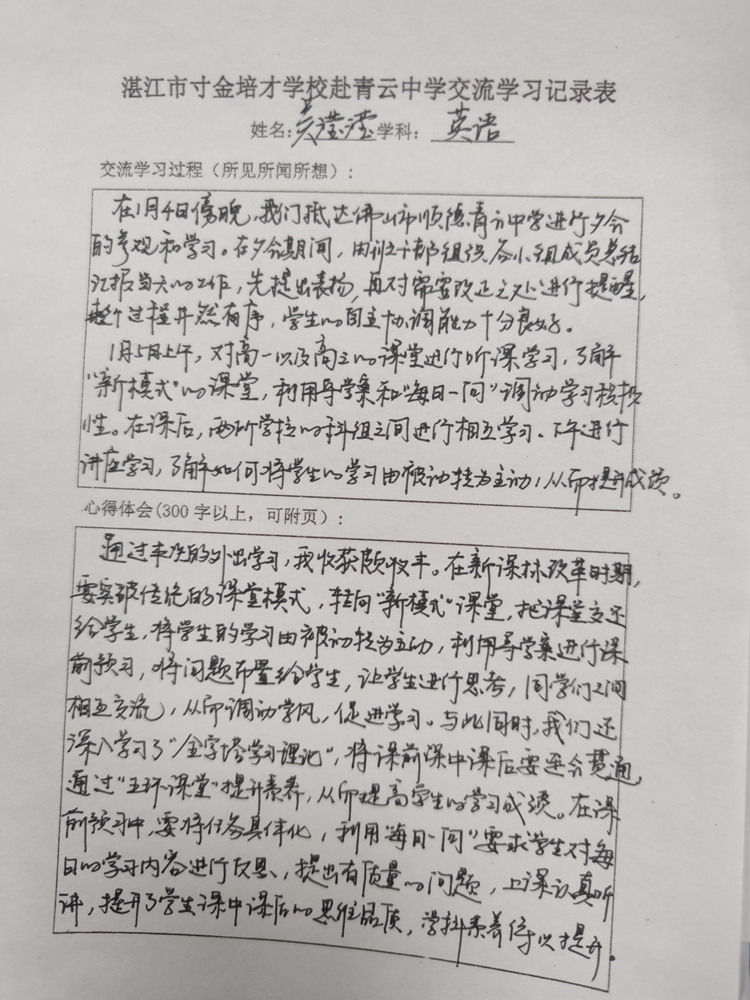 湛江市寸金培才学校赴青云中学交流学习记录表
姓名:吴滢滢学科: 英语
交流学习过程（所见所闻所想）:
在1月4日傍晚,我们抵达佛山市顺德青云中学进行夕会
的参观和学习。在夕会期间,由班干部组织各小组成员总结
汇报当天的工作,先提出表扬,再对需要改正之处进行提醒,
整个过程井然有序,学生的自主协调能力十分良好。
1月5日上午,对高一以及高二的课堂进行听课学习,了解
"新模式"的课堂,利用导学案和"每日一问"调动学习积极
性。在课后,两所学校的科组之间进行相互学习。下午进行
讲座学习,了解如何将学生的学习由被动转为主动,从而提升成绩。
心得体会(300字以上，可附页）:
通过本次的外出学习,我收获颇收丰。在新课标改革时期,
要突破传统的课堂模式,转向"新模式"课堂,把课堂交还
给学生,将学生的学习由被动转为主动,利用导学案进行课
前预习,将问题布置给学生,让学生进行思考,同学们之间
相互交流,从而调动学风,促进学习。与此同时,我们还
深入学习了"金字塔学习理论",将课前课中课后要逐会贯通,
通过"五环课堂"提升素养,从而提高学生的学习成绩。在课
前预习中,要将任务具体化,利用"每日一问"要求学生对每
日的学习内容进行反思,提出有质量的问题,上课认真听
讲,提升了学生课中课后的思维品质,学科素养得以提升。